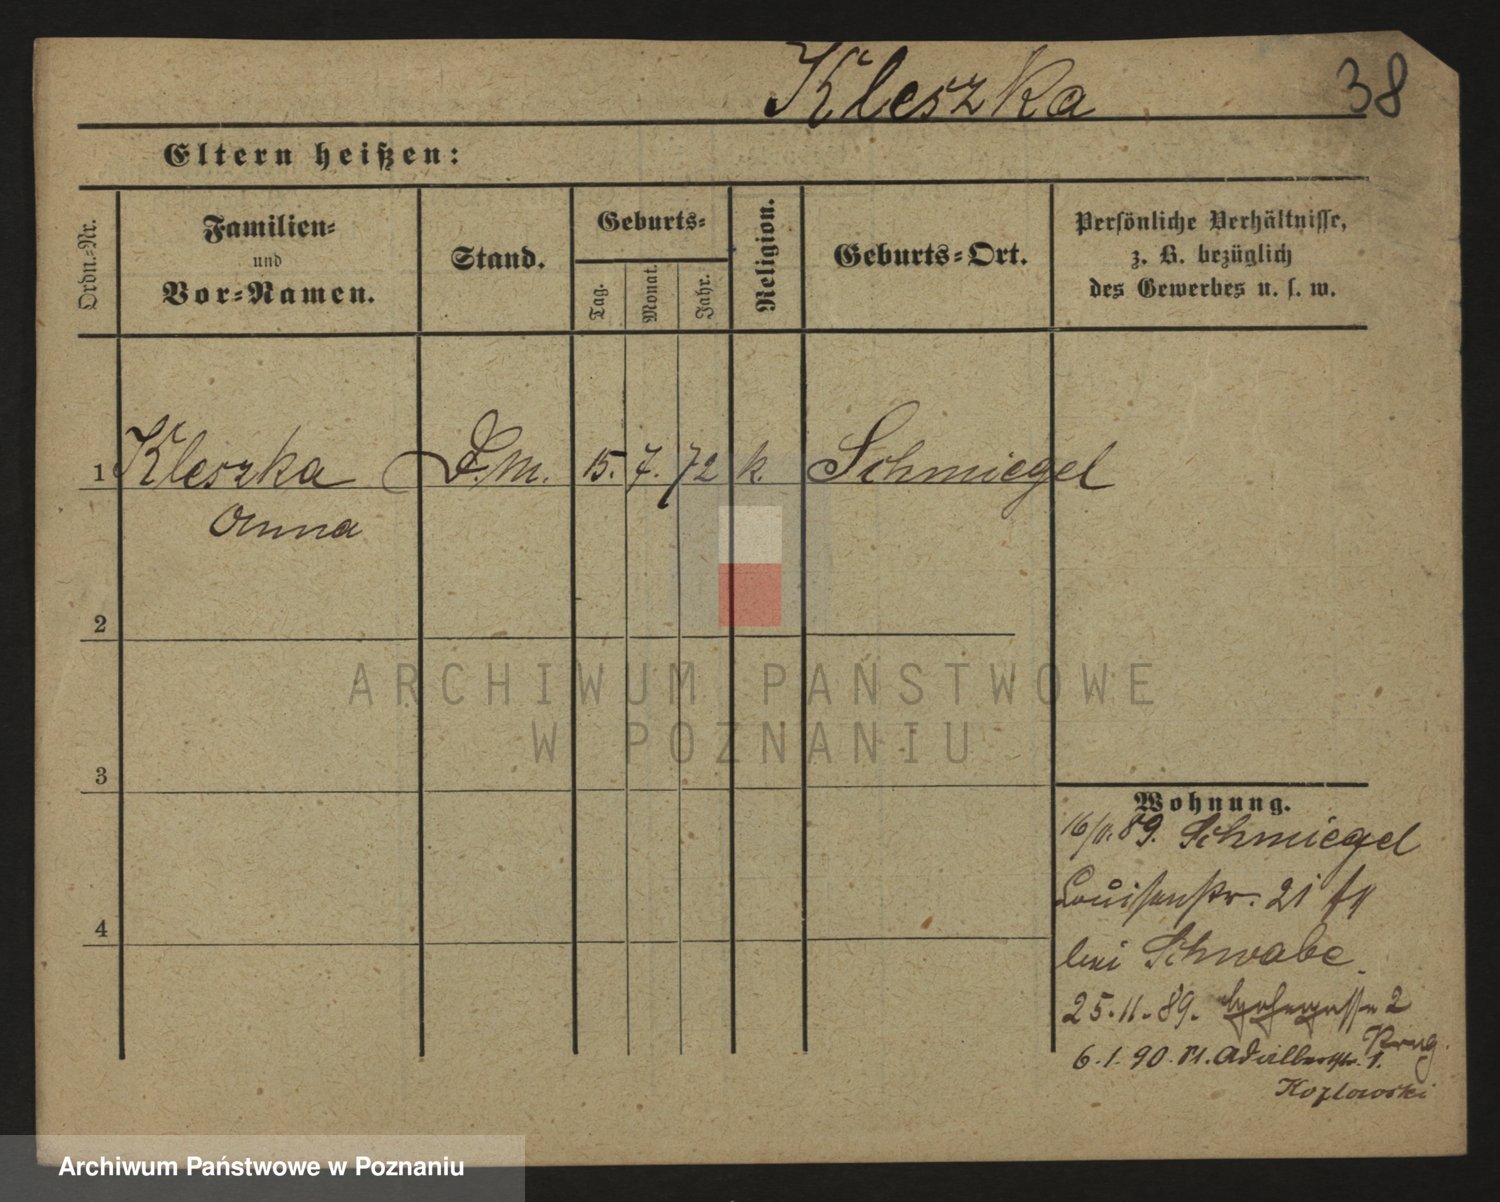 Kleszka 38
Eltern heißen:
Ordn.-Nr.
Familien-
und
Vor-Namen.
Stand.
Geburts-
Tag.
Monat.
Jahr.
Religion.
Geburts-Ort.
Persönliche Verhältnisse,
z. B. bezüglich
des Gewerbes u. s. w.
1 Kleszka D.M. 15. 7. 72 k. Schmiegel
Anna
2
3
4
Wohnung.
16/11.89. Schmiegel
Louisenstr. 21
bei Schwabe.
25.11.89. 2
6.1.90. Kl. Adalbertstr. 1.
Kozlowski
ARCHIWUM PAŃSTWOWE
W POZNANIU
Archiwum Państwowe w Poznaniu